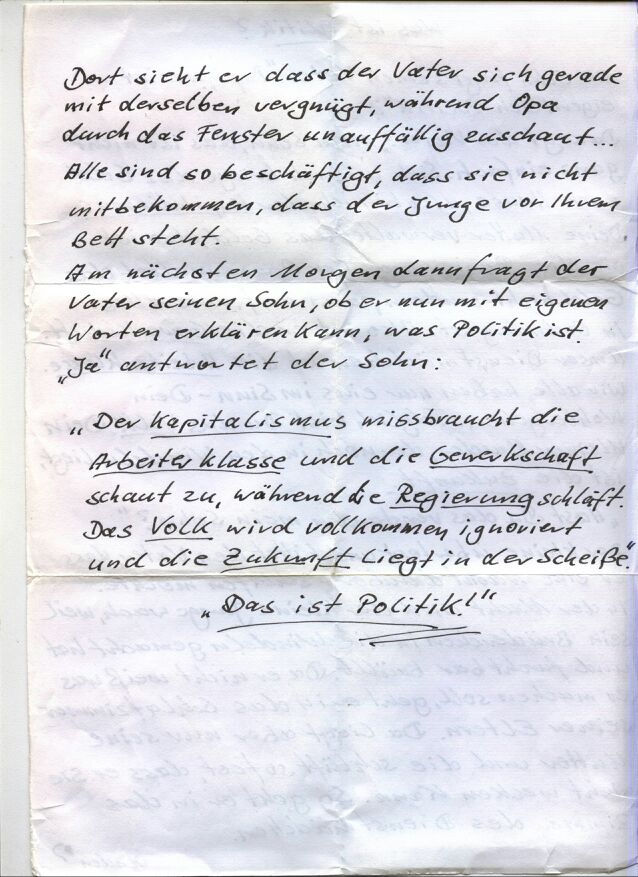 Dort sieht er dass der Vater sich gerade
mit derselben vergnügt, während Opa
durch das Fenster unauffällig zuschaut...
Alle sind so beschäftigt, dass sie nicht
mitbekommen, dass der Junge vor Ihrem
Bett steht.
Am nächsten Morgen dann fragt der
Vater seinen Sohn, ob er nun mit eigenen
Worten erklären kann, was Politik ist.
„Ja" antwortet der Sohn:
„Der Kapitalismus missbraucht die
Arbeiterklasse und die Gewerkschaft
schaut zu, während die Regierung schläft.
Das Volk wird vollkommen ignoriert
und die Zukunft liegt in der Scheiße".
„Das ist Politik!"